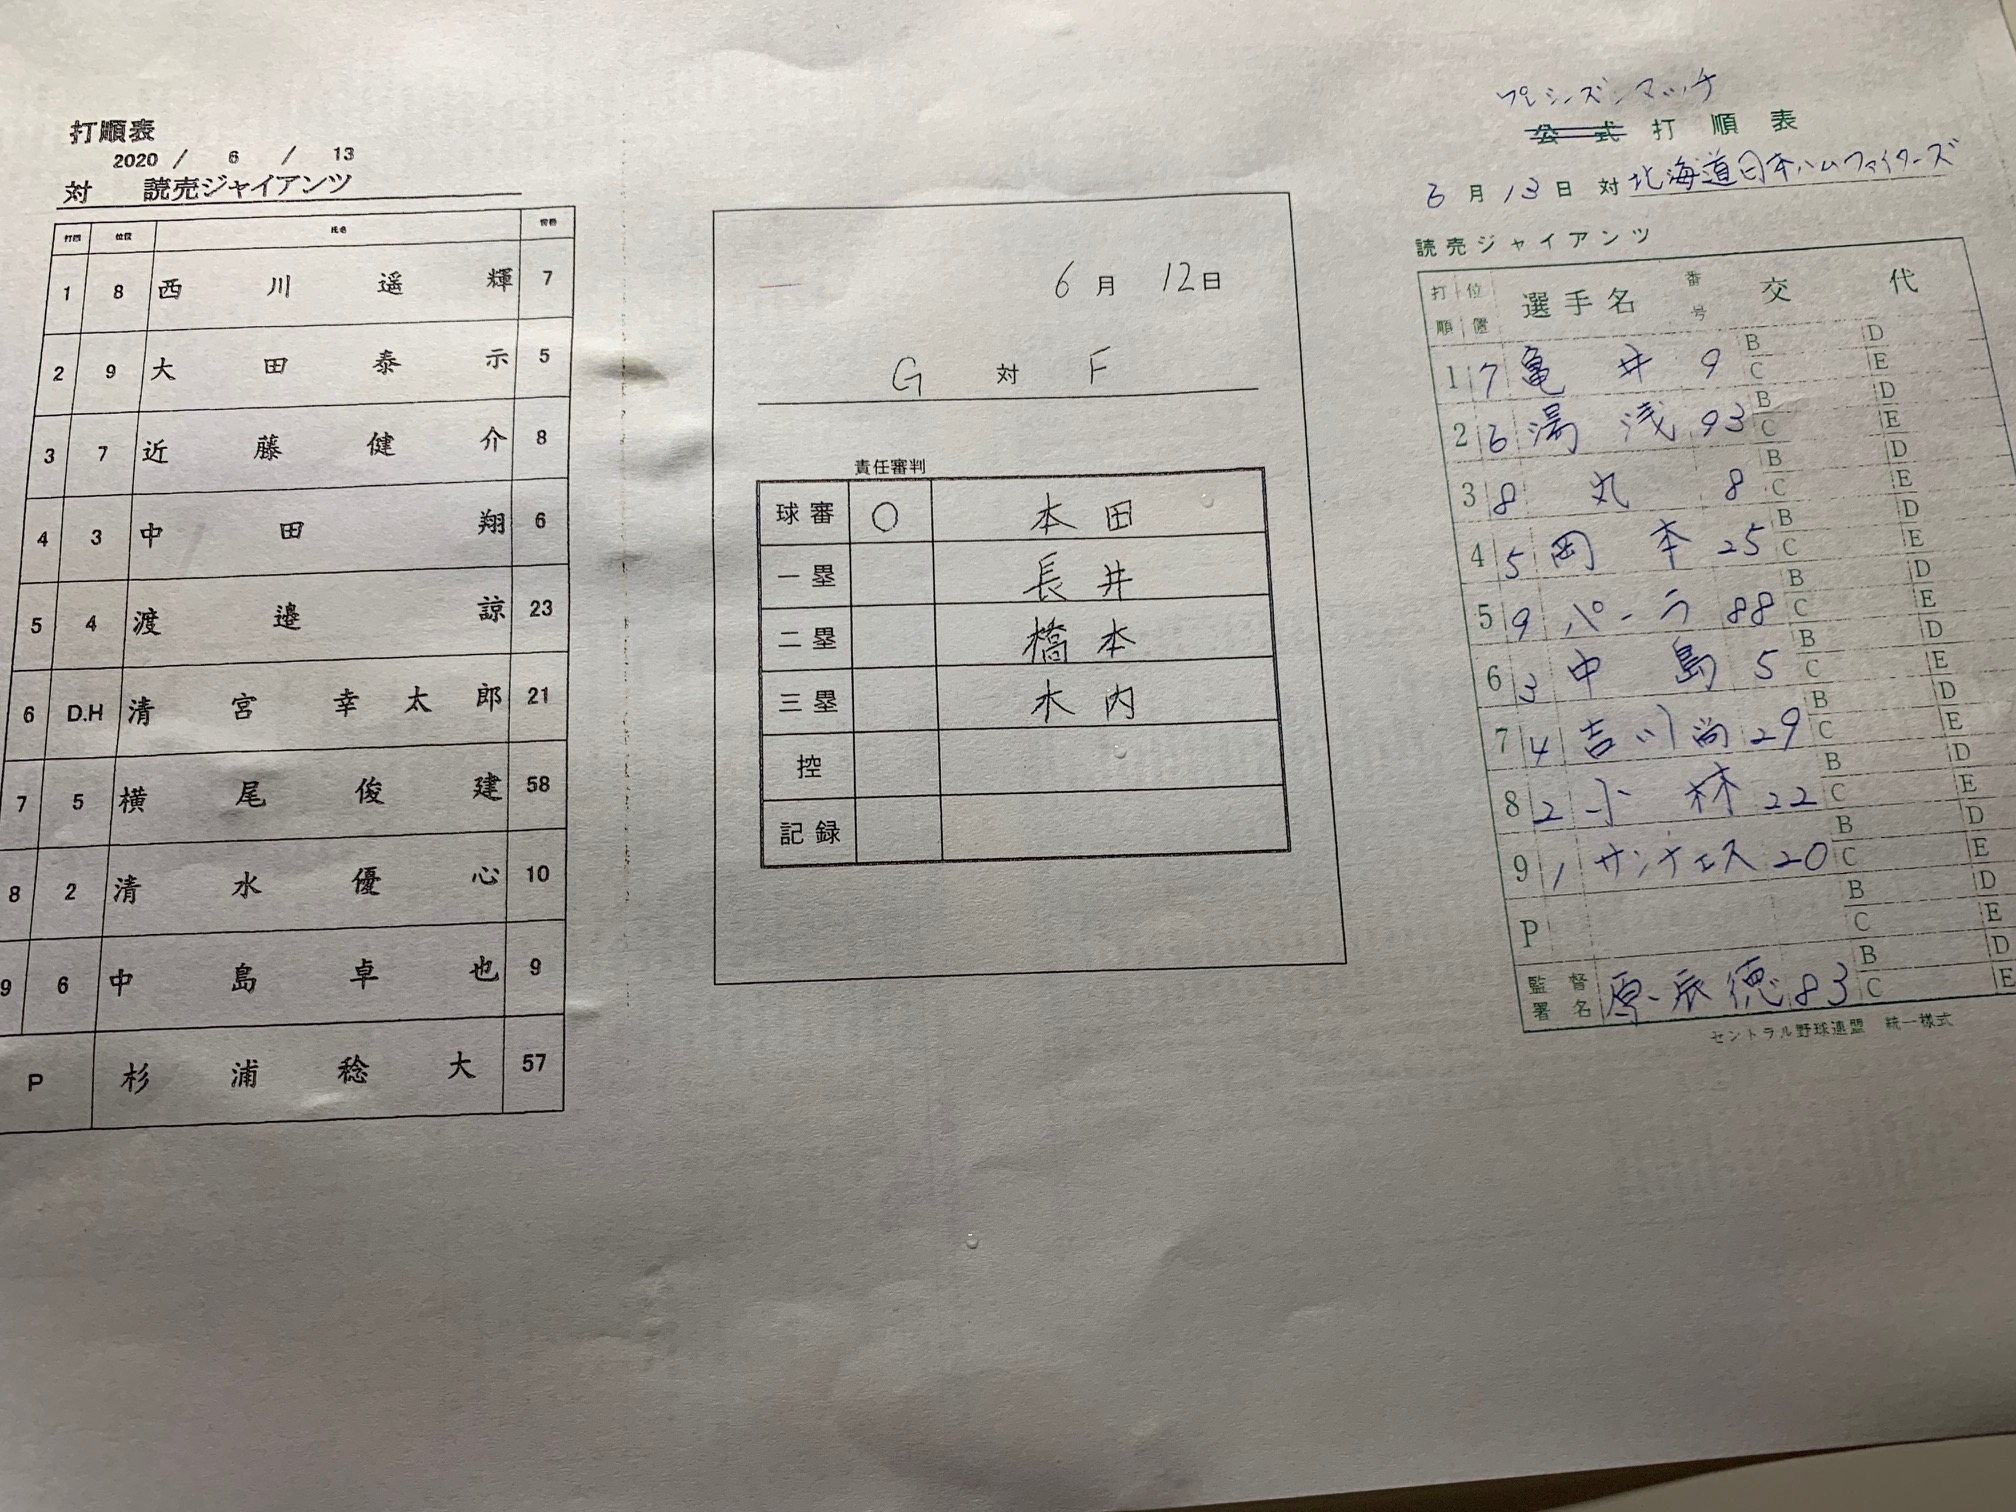 打順表
2020 / 6 / 13
対 読売ジャイアンツ
打順 位置 氏名 背番
1 8 西川遥輝 7
2 9 大田泰示 5
3 7 近藤健介 8
4 3 中田翔 6
5 4 渡邉諒 23
6 D.H 清宮幸太郎 21
7 5 横尾俊建 58
8 2 清水優心 10
9 6 中島卓也 9
P 杉浦稔大 57
6月12日
G 対 F
責任審判
球審 ○ 本田
一塁 長井
二塁 橋本
三塁 木内
控
記録
プレシーズンマッチ
公式打順表
6月13日 対 北海道日本ハムファイターズ
読売ジャイアンツ
打順 位置 選手名 番号 交代
1 7 亀井 9 B C D E
2 6 湯浅 93 B C D E
3 8 丸 8 B C D E
4 5 岡本 25 B C D E
5 9 パーラ 88 B C D E
6 3 中島 5 B C D E
7 4 吉川尚 29 B C D E
8 2 小林 22 B C D E
9 1 サンチェス 20 B C D E
P B C D E
監督署名 原辰徳 83 B C D E
セントラル野球連盟 統一様式